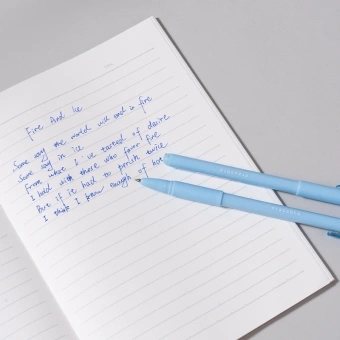 Fire And Ice
Some say the world will end in fire
Some say in ice
From what I've tasted of desire
I hold with those who favor fire
But if it had to perish twice
I think I know enough of hate